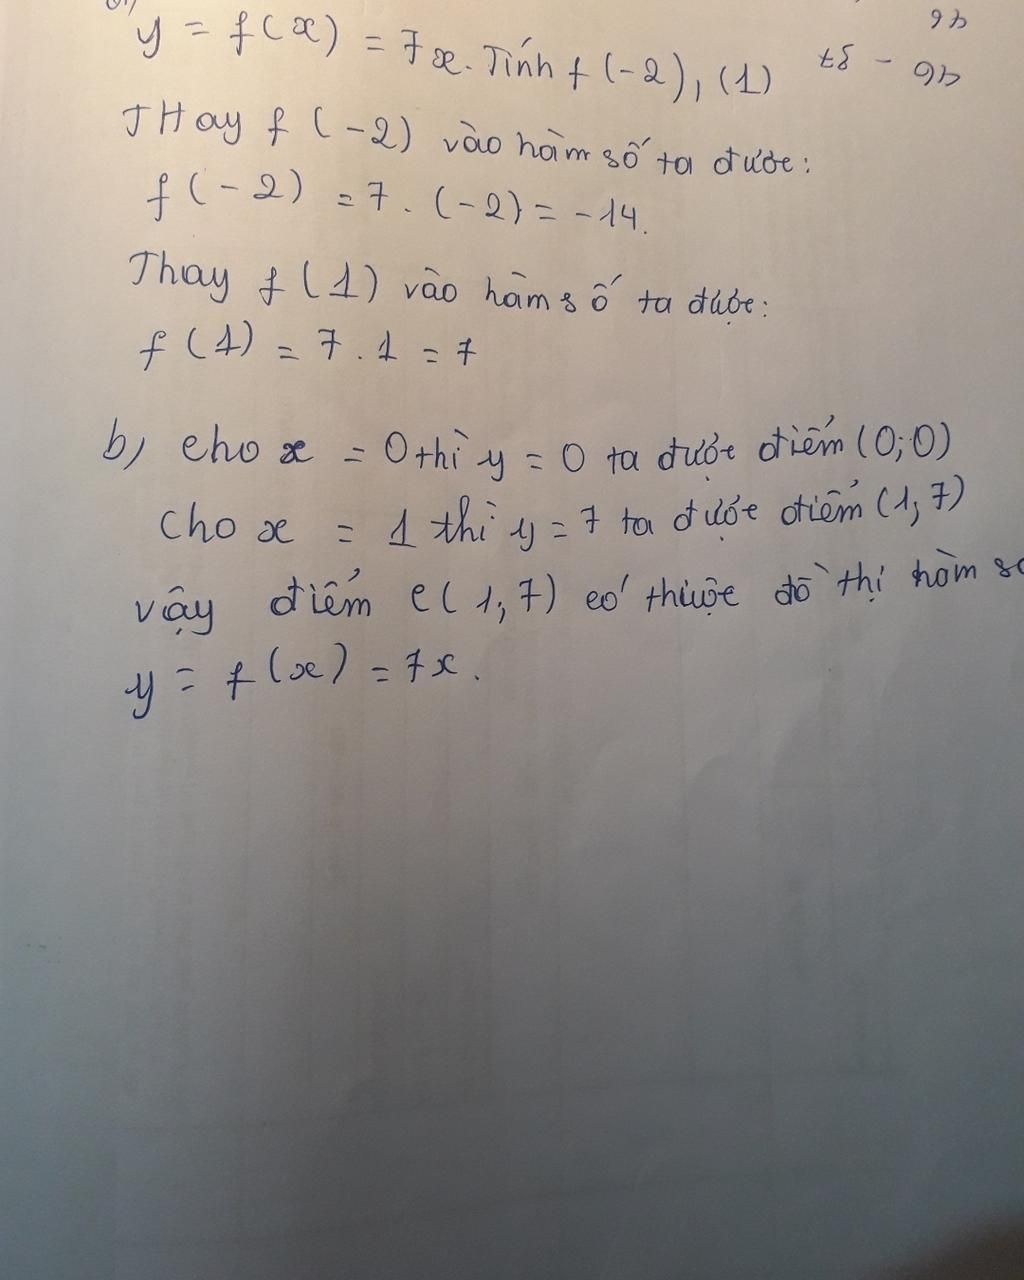 y = f(x) = 7x. Tính f(-2), (1)
THay f (-2) vào hàm số ta được:
f(-2) = 7 . (-2) = -14.
Thay f(1) vào hàm số ta được:
f(1) = 7 . 1 = 7
b) cho x = 0 thì y = 0 ta được điểm (0;0)
Cho x = 1 thì y = 7 ta được điểm (1,7)
vậy điểm c(1;7) có thuộc đồ thị hàm số
y = f(x) = 7x.